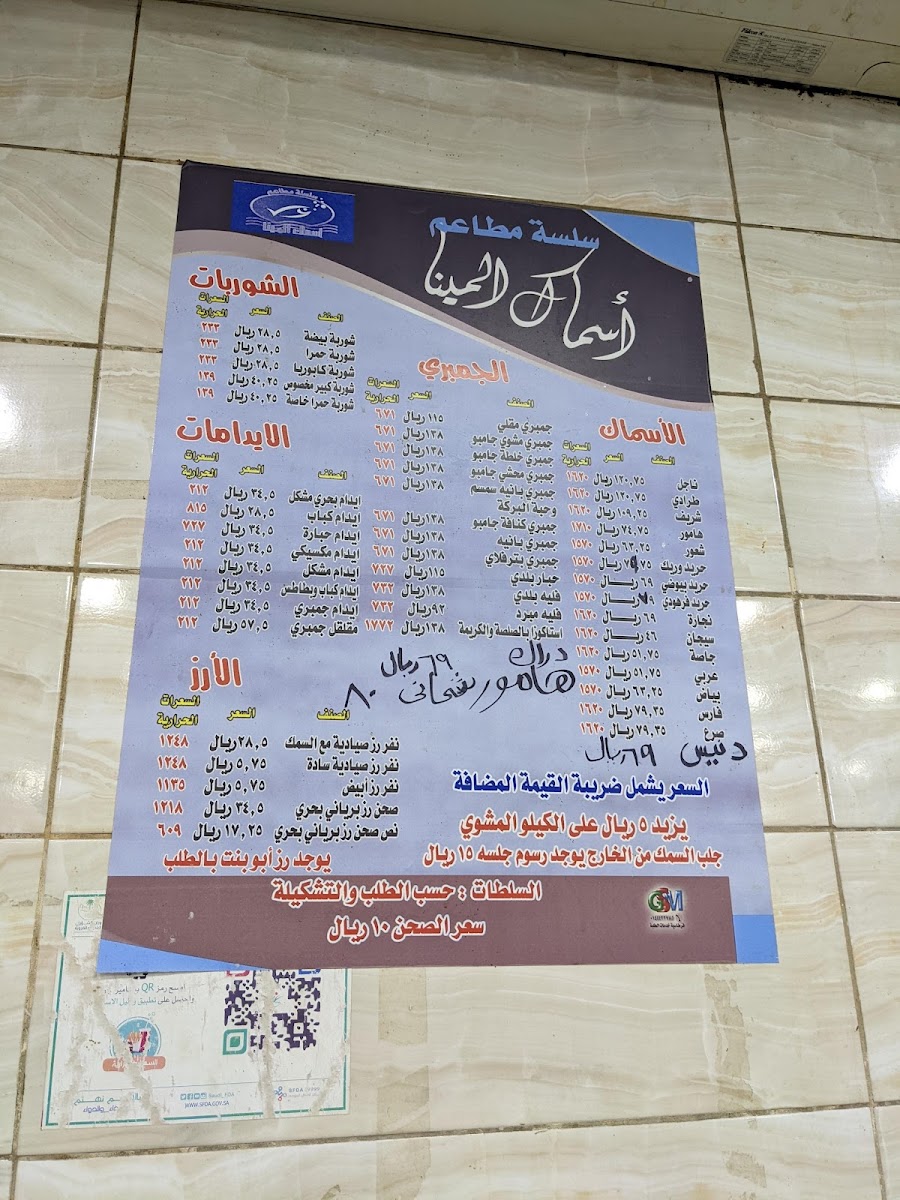 سلسة مطاعم
أسماك المينا
سلسلة مطاعم
أسماك المينا
الأسماك
الصنف السعر السعرات الحرارية
ناجل ١٢٠,٧٥ ريال ١٦٢٠
طرادي ١٢٠,٧٥ ريال ١٦٢٠
شريف ١٠٩,٢٥ ريال ١٦٣٠
هامور ٧٤,٧٥ ريال ١٧١٠
شعور ٦٣,٢٥ ريال ١٥٧٠
حريد وريك ١٥٧٠
حريد بيوضي ٦٩ ريال ١٥٧٠
حريد فرهودي ريال ١٥٧٠
نجارة ٦٩ ريال ١٦٢٠
سيجان ٤٦ ريال ١٦٢٠
جاصة ٥١,٧٥ ريال ١٦٢٠
عربي ٥١,٧٥ ريال ١٥٧٠
بياض ٦٣,٢٥ ريال ١٥٧٠
فارس ٧٩,٣٥ ريال ١٦٢٠
صرع ٧٩,٣٥ ريال ١٦٢٠
دنيس ٦٩ ريال
الجمبري
الصنف السعر السعرات الحرارية
جمبري مقلي ١١٥ ريال ٦٧١
جمبري مشوي جامبو ١٣٨ ريال ٦٧١
جمبري خلطة جامبو ١٣٨ ريال ٦٧١
جمبري محشي جامبو ١٣٨ ريال ٦٧١
جمبري بانيه سمسم ١٣٨ ريال ٦٧١
وحبة البركة
جمبري كنافة جامبو ١٣٨ ريال ٦٧١
جمبري بانيه ١٣٨ ريال ٦٧١
جمبري بترفلاي ١٣٨ ريال ٦٧١
حبار بلدي ١١٥ ريال ٧٢٧
فليه بلدي ١٣٨ ريال ٧٣٢
فليه مبرد ٩٢ ريال ٧٣٢
استاكوزا بالصلصة والكريمة ١٣٨ ريال ١٧٧٢
دراك ٦٩ ريال
هامور ٨٠
الشوربات
الصنف السعر السعرات الحرارية
شوربة بيضة ٢٨,٥ ريال ٢٣٣
شوربة حمرا ٢٨,٥ ريال ٢٣٣
شوربة كابوريا ٢٨,٥ ريال ٢٣٣
شوربة كبير مخصوص ٤٠,٢٥ ريال ١٣٩
شوربة حمرا خاصة ٤٠,٢٥ ريال ١٣٩
الايدامات
الصنف السعر السعرات الحرارية
إيدام بحري مشكل ٣٤,٥ ريال ٢١٢
إيدام كباب ٢٨,٥ ريال ٨١٥
إيدام حبارة ٣٤,٥ ريال ٧٢٧
إيدام مكسيكي ٣٤,٥ ريال ٢١٢
إيدام مشكل ٣٤,٥ ريال ٢١٢
إيدام كباب وبطاطس ٣٤,٥ ريال ٢١٢
إيدام جمبري ٣٤,٥ ريال ٢١٢
مقلقل جمبري ٥٧,٥ ريال ٢١٢
الأرز
الصنف السعر السعرات الحرارية
نفر رز صيادية مع السمك ٢٨,٥ ريال ١٢٤٨
نفر رز صيادية سادة ٥,٧٥ ريال ١٢٤٨
نفر رز أبيض ٥,٧٥ ريال ١١٣٥
صحن رز برياني بحري ٣٤,٥ ريال ١٢١٨
نص صحن رز برياني بحري ١٧,٢٥ ريال ٦٠٩
يوجد رز أبو بنت بالطلب
السعر يشمل ضريبة القيمة المضافة
يزيد ٥ ريال على الكيلو المشوي
جلب السمك من الخارج يوجد رسوم جلسه ١٥ ريال
السلطات : حسب الطلب والتشكيلة
سعر الصحن ١٠ ريال
WWW.SFDA.GOV.SA